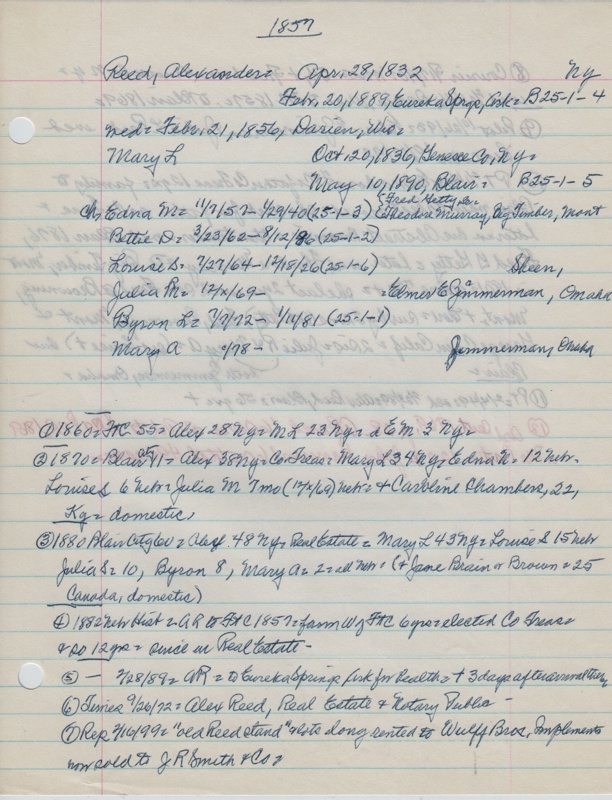 1857
Reed, Alexander = Apr. 28, 1832 Ny
Febr. 20, 1889, Eureka Sprgs, Ark = B25-1-4
med = Febr. 21, 1856, Darien, Wis =
Mary L Oct. 20, 1836, Genesee Co, Ny =
May 10, 1890, Blair = B25-1-5
Ch, Edna M = 11/7/57 - 1/29/40 (25-1-3) (Fred Hetty,
Theodore Murray, Big Timber, Mont
Bettie D = 3/23/62 - 8/12/ (25-1-2)
Louise S = 7/27/64 - 12/18/26 (25-1-6) Sheen,
Julia M = 12/x/69 - = Elmer E Zimmerman, Omaha
Byron L = 7/7/72 - 1/14/81 (25-1-1)
Mary A /78 - Zimmerman, Omaha
① 1860 = FtC 55 = Alex 28 Ny = M L 23 Ny = & E M 3 Ny =
② 1870 = Blair 41 = Alex 38 Ny = Co Treas = Mary L 34 Ny = Edna N = 12 Nebr -
Louise S 6 Nebr = Julia M 7 mo (12/69) Nebr = + Caroline Chambers, 22,
Ky = domestic,
③ 1880 Blair City 60 = Alex 48 Ny = Real Estate = Mary L 43 Ny = Louise S 15 Nebr
Julia S = 10, Byron 8, Mary A = 2 = all Nebr = (+ Jane Brain or Brown = 25
Canada, domestic)
④ 1882 Nebr Hist = A R to Ft C 1857 = farm W of Ft C 6 yrs = elected Co Treas
& so 12 yrs = since in Real Estate -
⑤ — 2/28/89 = AR = to Eureka Springs Ark for health = + 3 days after arrival there
⑥ Times 9/26/72 = Alex Reed, Real Estate & Notary Public -
⑦ Rep 2/16/99 = "old Reed stand" & lots along rented to Wulff Bros, Implements
now sold to J R Smith & Co =